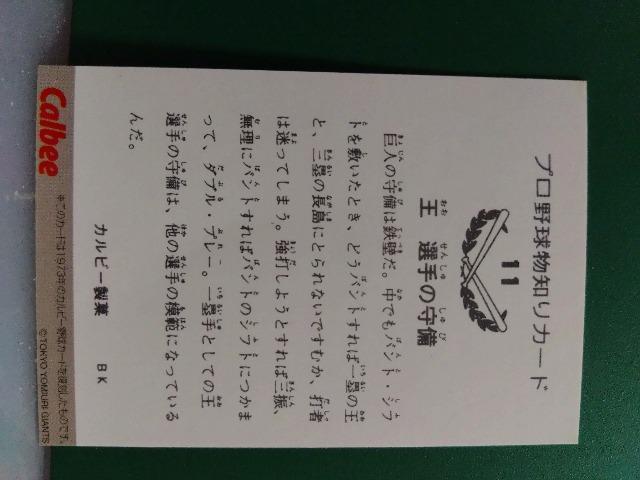 プロ野球物知りカード
11
王 選手の守備
巨人の守備は鉄壁だ。中でもバント・シフ
トを敷いたとき、どうバントすれば一塁の王
と、三塁の長島にとられないですむか、打者
は迷ってしまう。強打しようとすれば三振、
無理にバントすればバントのシフトにつかま
って、ダブル・プレー。一塁手としての王
選手の守備は、他の選手の模範になっている
んだ。
カルビー製菓 BK
Calbee
※このカードは1973年のカルビー野球カードを復刻したものです。
© TOKYO YOMIURI GIANTS